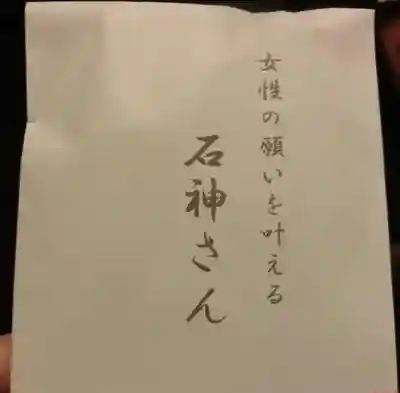 女性の願いを叶える
石神さん